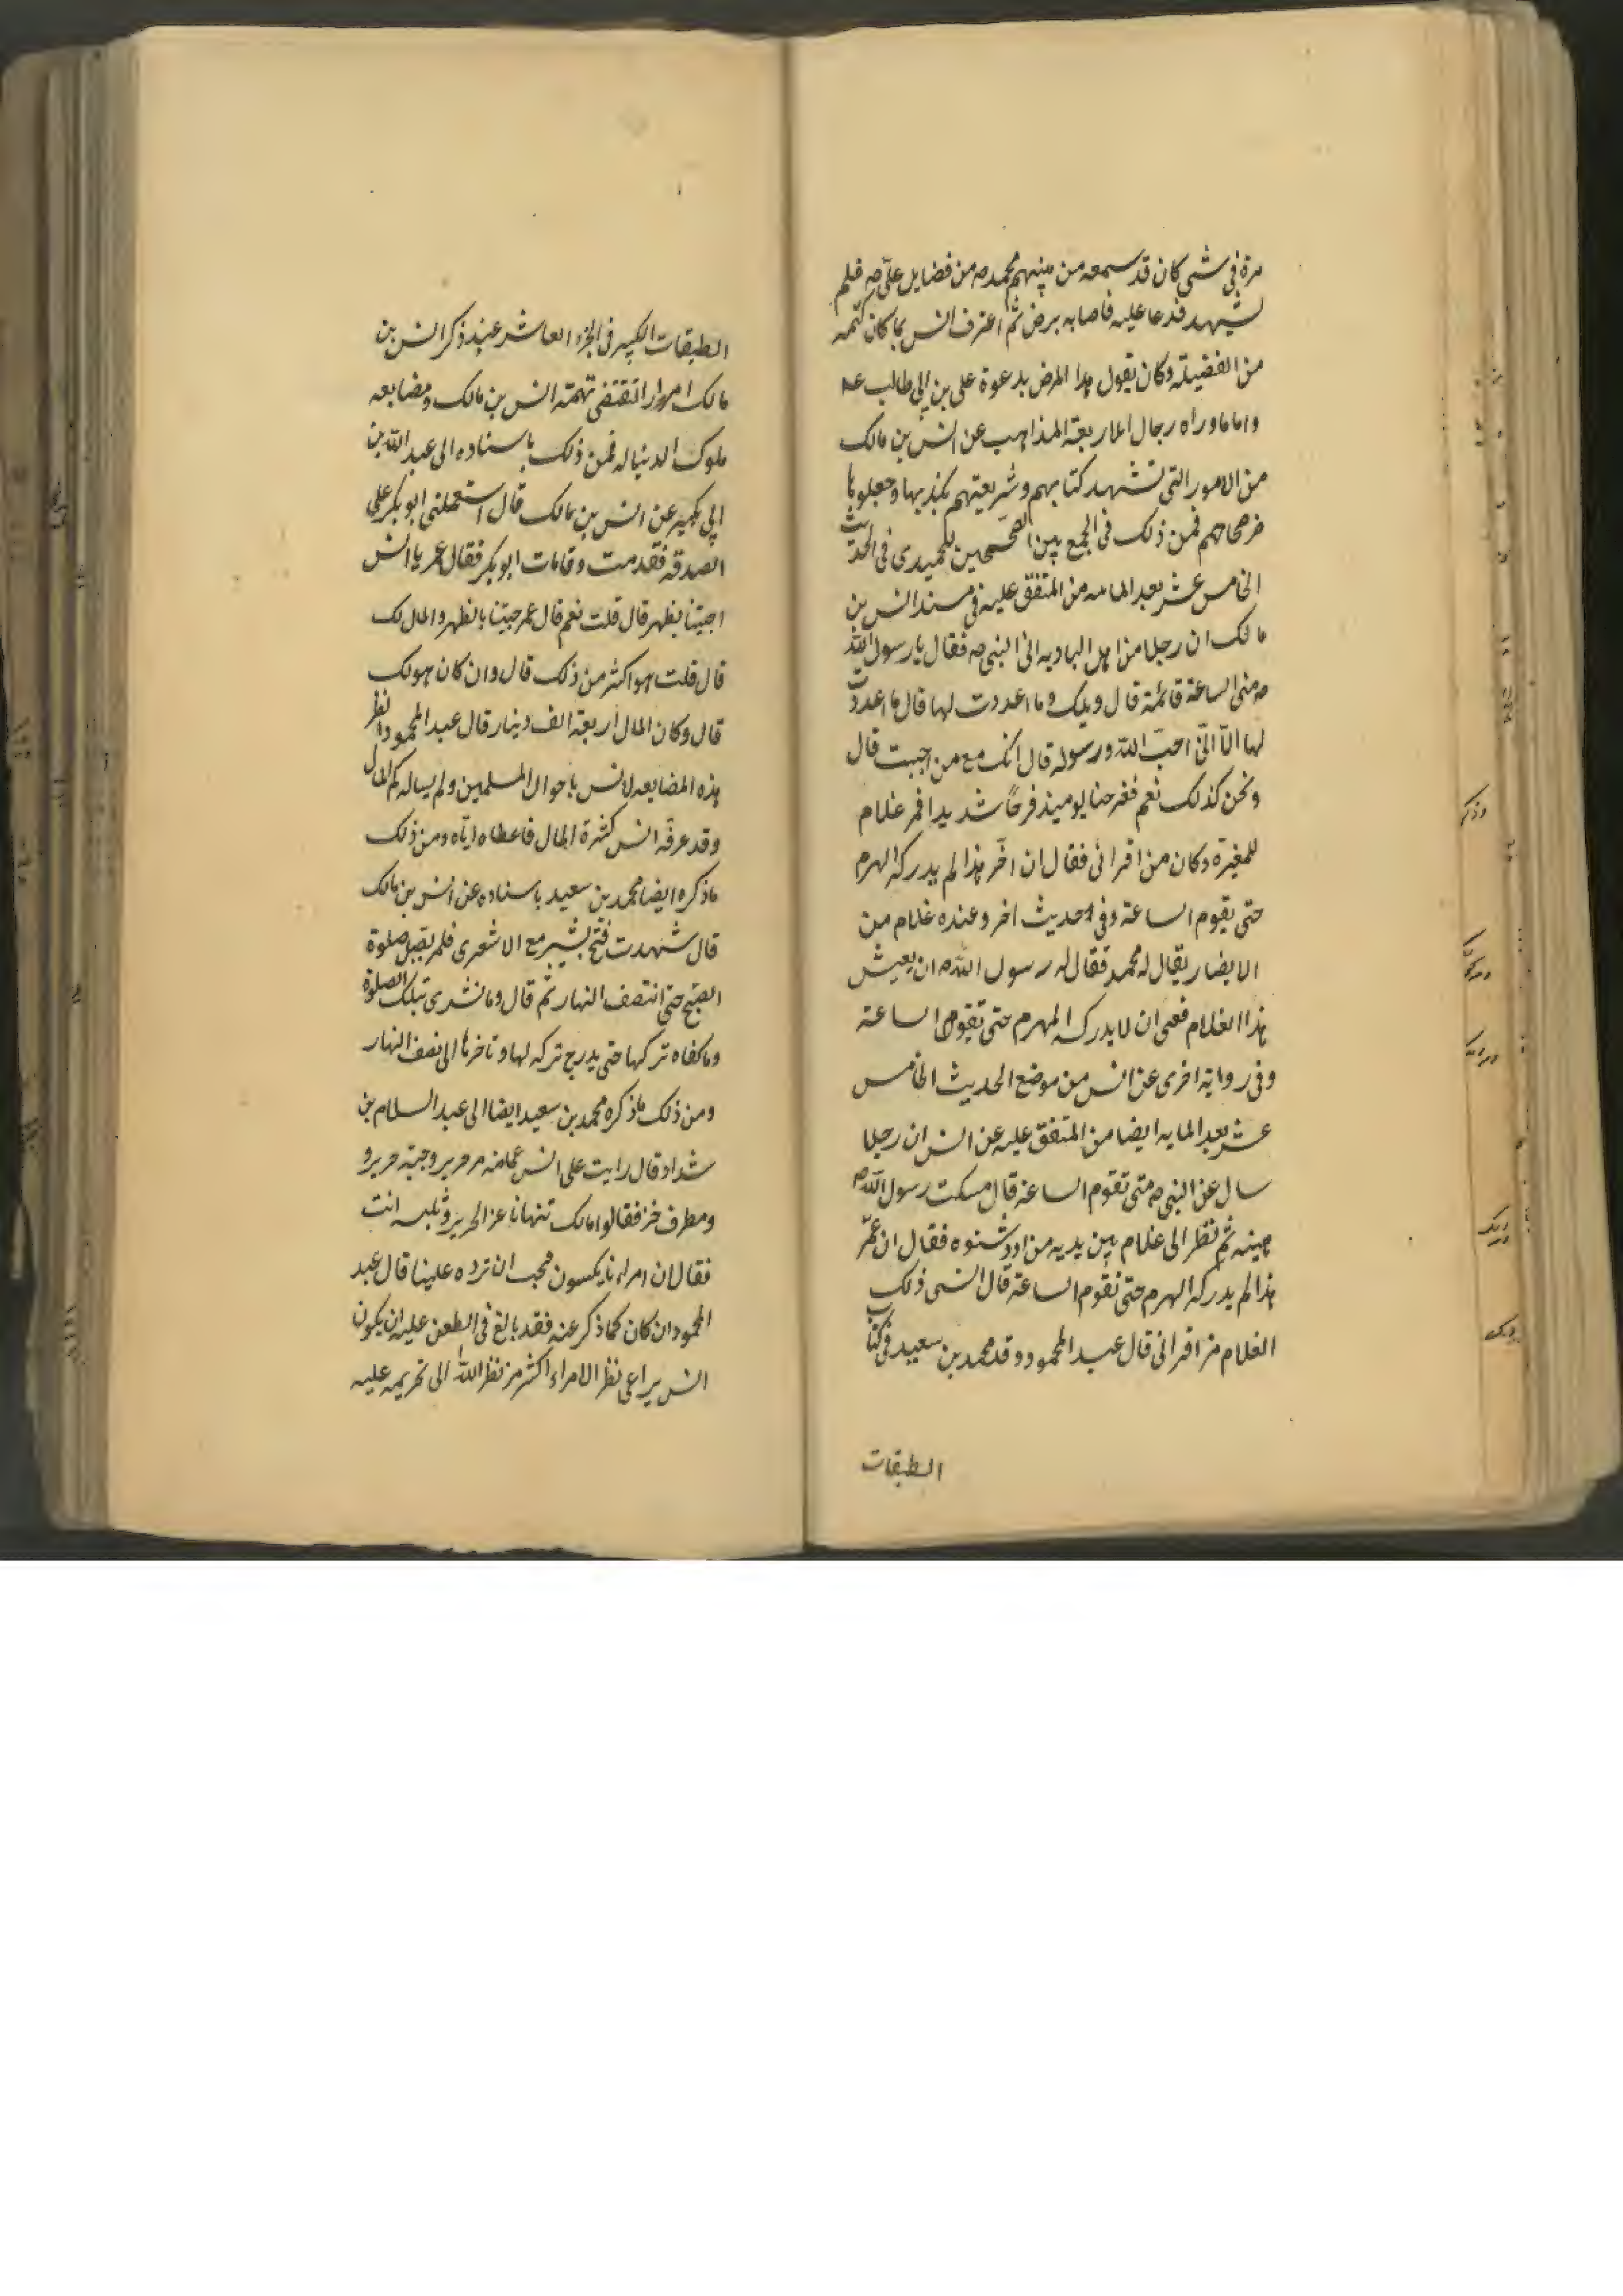 مرة في شي كان قد سمعه من نبيهم محمد ص من فضايل علي ص فلم
يشهد فدعا عليه فاصابه برص ثم اعترف انس بما كان كتمه
من الفضيلة وكان يقول هذا المرض بدعوة علي بن ابي طالب ع
واما ما وراه رجال الاربعة المذاهب عن انس بن مالك
من الامور التي تشهد كتابهم وشريعتهم بكذبها وجعلوها
في صحاحهم فمن ذلك في الجمع بين الصحيحين للحميدي في الحديث
الخامس عشر بعد المايه من المتفق عليه في مسند انس بن
مالك ان رجلا من اهل الباديه اتى النبي ص فقال يا رسول الله
ص متى الساعة قائمة قال ويلك وما اعددت لها قال ما اعددت
لها الّا انّي احبّ الله ورسوله قال انك مع من احببت قال
ونحن كذلك نعم ففرحنا يوميذ فرحًا شديدا فمر غلام
للمغيرة وكان من اقراني فقال ان اخّر هذا لم يدركه الهرم
حتى يقوم الساعة وفي حديث اخر وعنده غلام من
الانصار يقال له محمد فقال له رسول الله ص ان يعيش
هذا الغلام فعسى ان لا يدركه الهرم حتى تقوم الساعة
وفي رواية اخرى عن انس من موضع الحديث الخامس
عشر بعد المايه ايضا من المتفق عليه عن انس ان رجلا
سال عن النبي ص متى تقوم الساعة قال فسكت رسول الله ص
هنيه ثم نظر الى غلام بين يديه من ازد شنوه فقال ان عمّر
هذا لم يدركه الهرم حتى تقوم الساعة قال انس ذلك
الغلام من اقراني قال عبد المحمود وقد محمد بن سعيد في كتاب
الطبقات
الطبقات الكبير في الجزء العاشر عند ذكر انس بن
مالك امورا تقتضي تهمة انس بن مالك ومضايعه
ملوك الدنيا له فمن ذلك باسناده الى عبد الله بن
ابي بكير عن انس بن مالك قال استعملني ابو بكر على
الصدقة فقدمت وقد مات ابو بكر فقال عمر يا انس
اجيتنا بظهر قال قلت نعم قال عمر جيتنا بالظهر والمال لك
قال قلت هو اكثر من ذلك قال وان كان هو لك
قال وكان المال اربعة الف دينار قال عبد المحمود انظر
هذه المضايعه لانس باحوال المسلمين ولم يساله كم المال
وقد عرفه انس كثرة المال فاعطاه ايّاه ومن ذلك
ما ذكره ايضا محمد بن سعيد باسناده عن انس بن مالك
قال شهدت فتح تشتر مع الاشعري فلم يصل صلوة
الصبح حتى انتصف النهار ثم قال وما نشري بتلك الصلوة
وما كفاه تركها حتى يدرج تركه لها وتاخرها الى نصف النهار
ومن ذلك ما ذكره محمد بن سعيد ايضا الى عبد السلام بن
شداد قال رايت على انس عمامة من حرير وجبة حرير و
ومطرف خز فقالوا مالك تنهانا عن الحرير وتلبسه انت
فقال ان امراءنا يكسون فيحب ان نرده علينا قال عبد
المحمود ان كان كما ذكر عنه فقد بالغ في الطعن عليه ان يكون
انس يراعي نظر الامراء اكثر من نظر الله الى تحريمه عليه